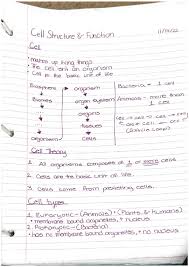 Cell Structure & Function
11/17/22
Cell
• makes up living things
• The cell isn't an organism
• Cell is the basic unit of life
Biosphere → organism
Bacteria = 1 cell
Biomes organ system Animals - more than 1 cell
organs Cell → tissue → organ
tissues
cells
Cell Theory
1. All organisms composed of 1 or more cells
2. Cells are the basic unit of life.
3. Cells come from preexisting cells.
Cell types
1. Eukaryotic - (Animals) - (Plants & Humans)
• membrane bound organelles, + nucleus
2. Prokaryotic - (Bacteria)
• has no membrane bound organelles, + no nucleus